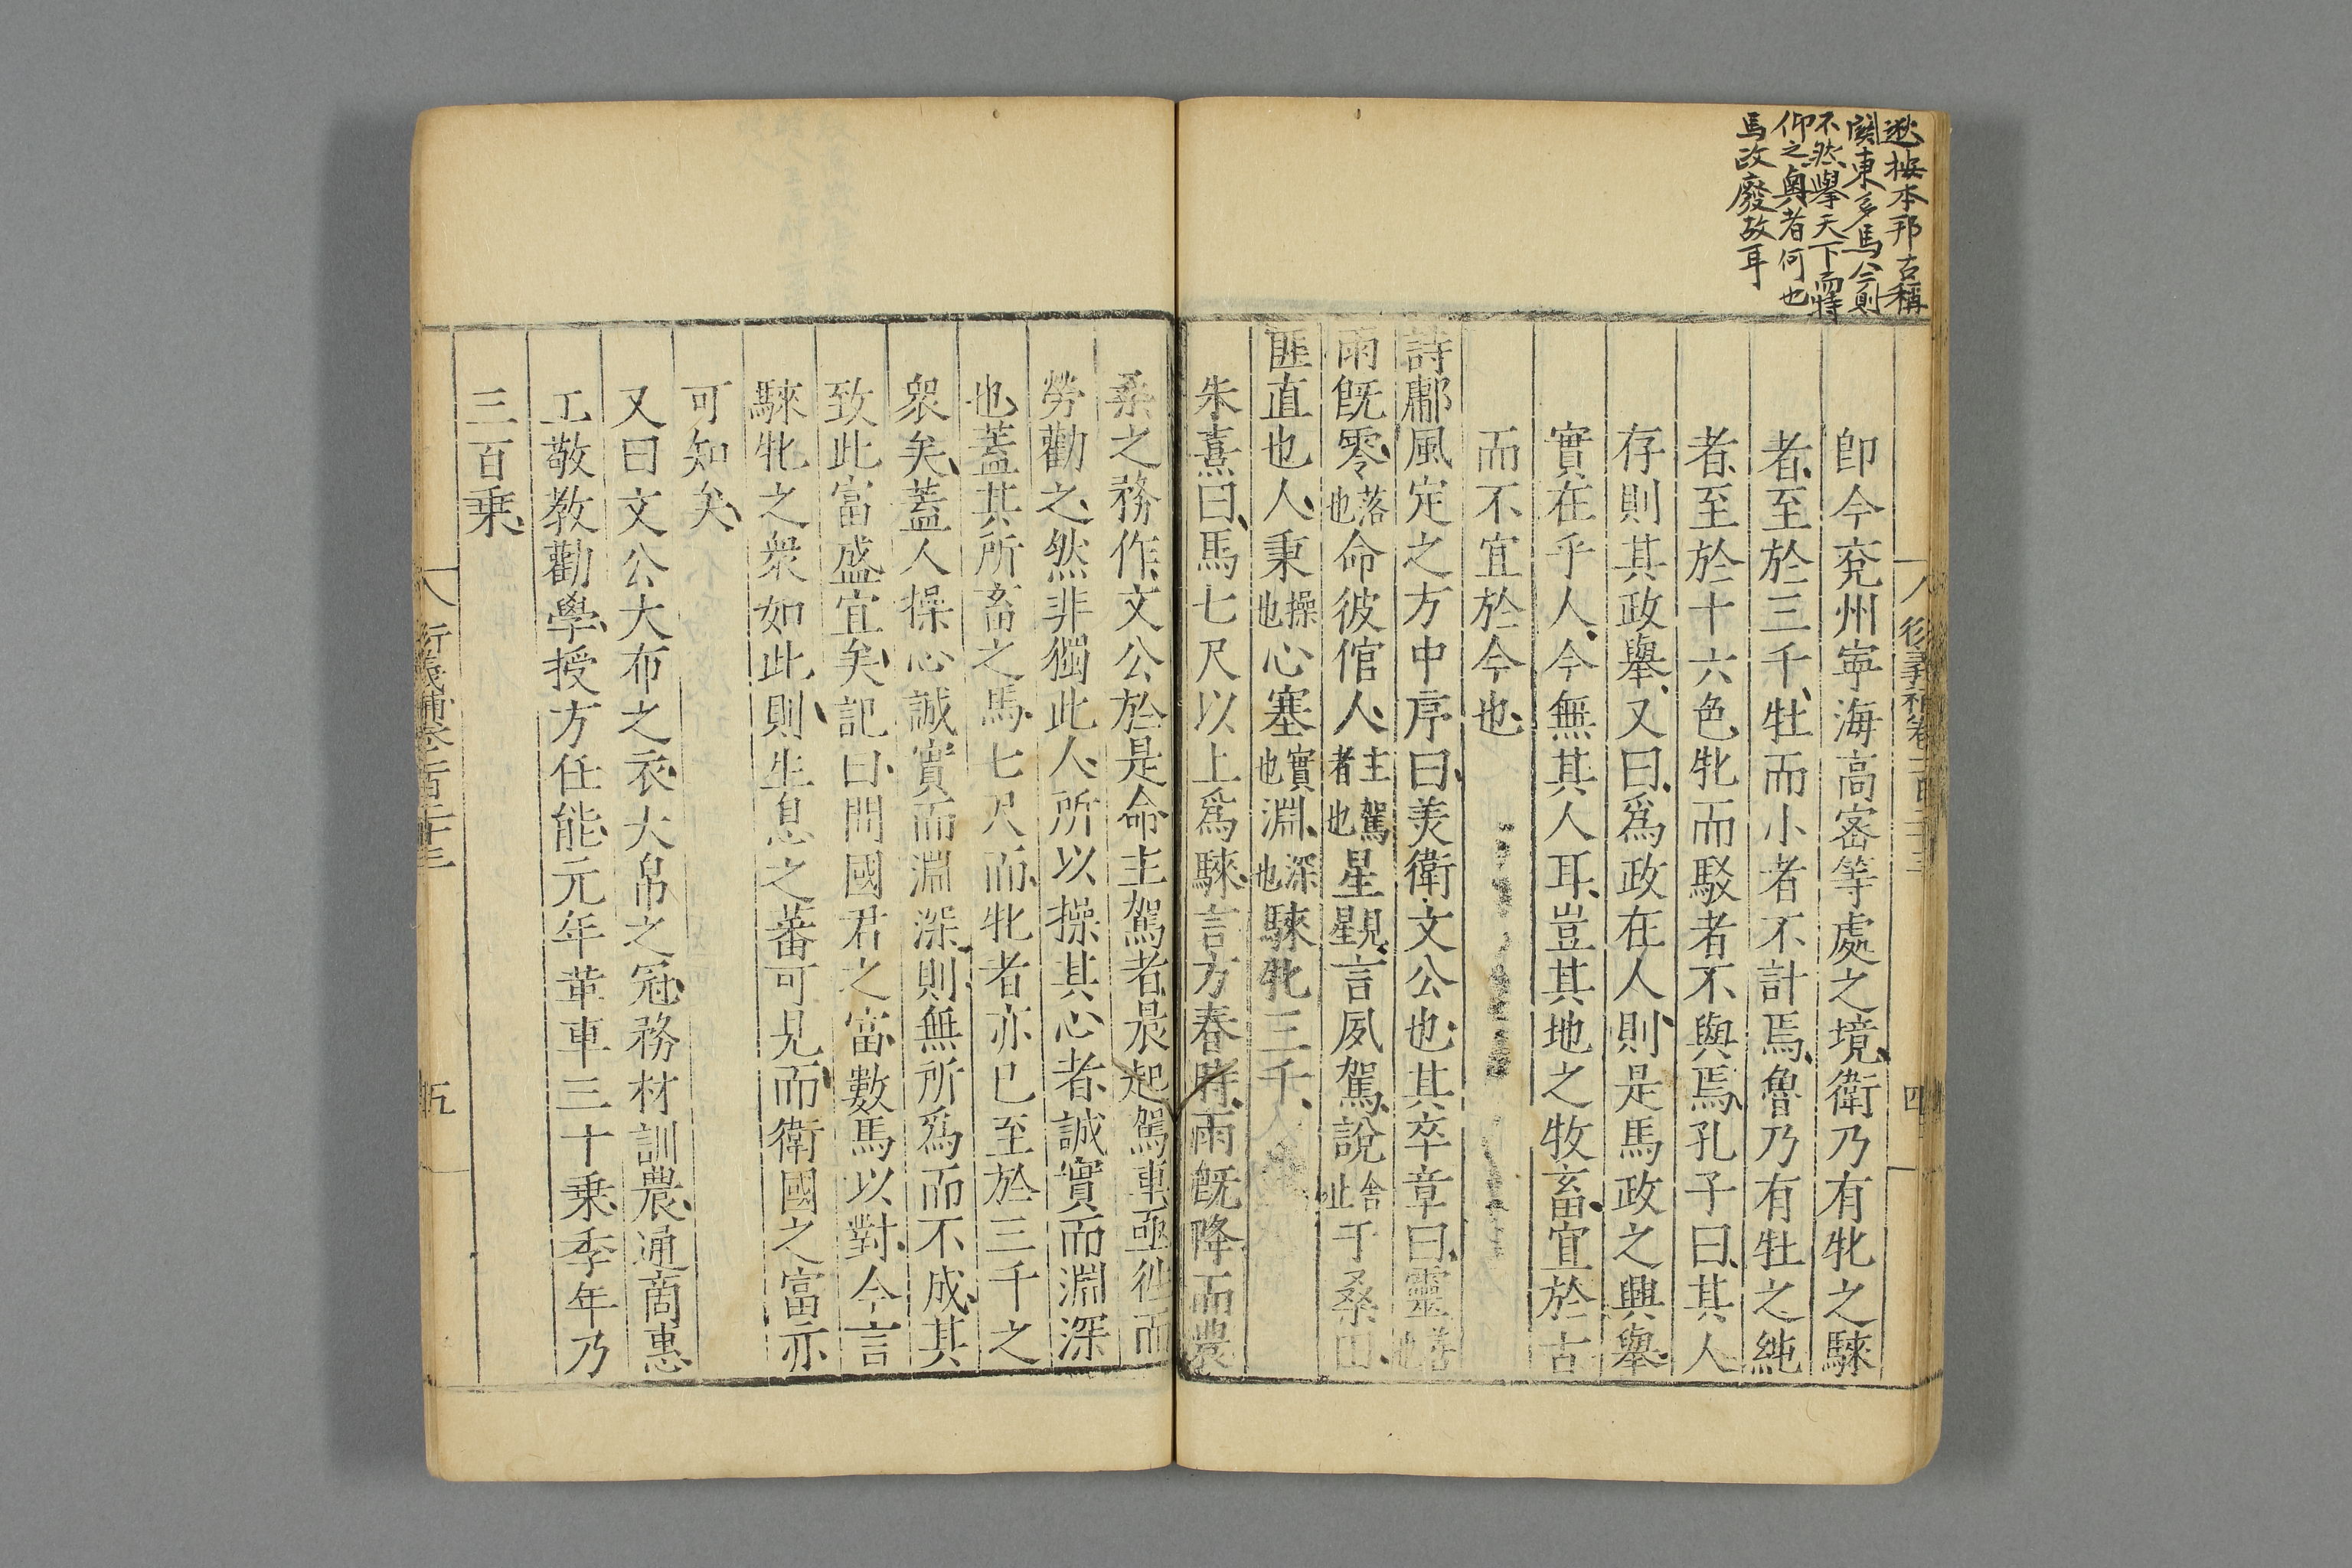 逖按本邦古稱
関東多馬今則
不然擧天下而特
仰之奥者何也
馬政廢故耳
衍義補卷一百二十三
四
卽今兗州寧海高密等處之境衛乃有牝之騋
者至於三千牡而小者不計焉魯乃有牡之純
者至於十六色牝而駁者不與焉孔子曰其人
存則其政舉又曰爲政在人則是馬政之興舉
實在乎人今無其人耳豈其地之牧畜宜於古
而不宜於今也
詩鄘風定之方中序曰美衛文公也其卒章曰靈善也
雨旣零落也命彼倌人主駕者也星見星言夙駕說舍止于桑田
匪直也人秉操也心塞實也淵深也騋牝三千
朱熹曰馬七尺以上爲騋言方春時雨旣降而農
桑之務作文公於是命主駕者晨起駕車亟徃而
勞勸之然非獨此人所以操其心者誠實而淵深
也蓋其所畜之馬七尺而牝者亦已至於三千之
衆矣蓋人操心誠實而淵深則無所爲而不成其
致此富盛宜矣記曰問國君之富數馬以對今言
騋牝之衆如此則生息之蕃可見而衛國之富亦
可知矣
又曰文公大布之衣大帛之冠務材訓農通商惠
工敬教勸學授方任能元年革車三十乗季年乃
三百乗
衍義補卷一百二十三
五